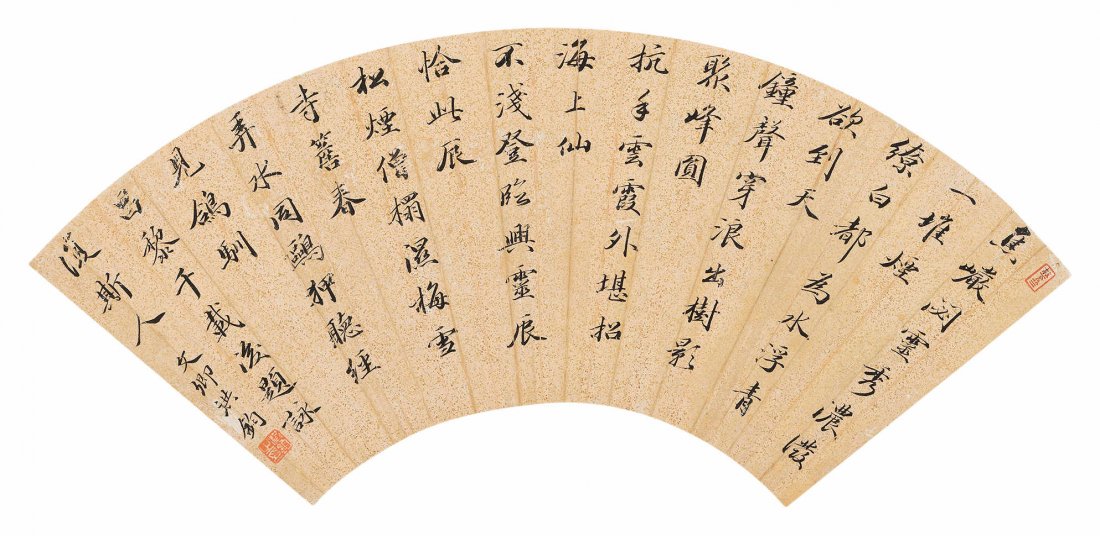 焦巖閟靈秀濃潑
一堆煙
繚白都為水浮青
欲到天
鐘聲穿浪出樹影
聚峰圓
抗手雲霞外堪招
海上仙
不淺登臨興靈辰
恰此辰
松煙僧榻濕梅雪
寺舊春
弄水同鷗狎聽經
見鴿馴
昌黎千載後題詠
復斯人
文卿洪鈞